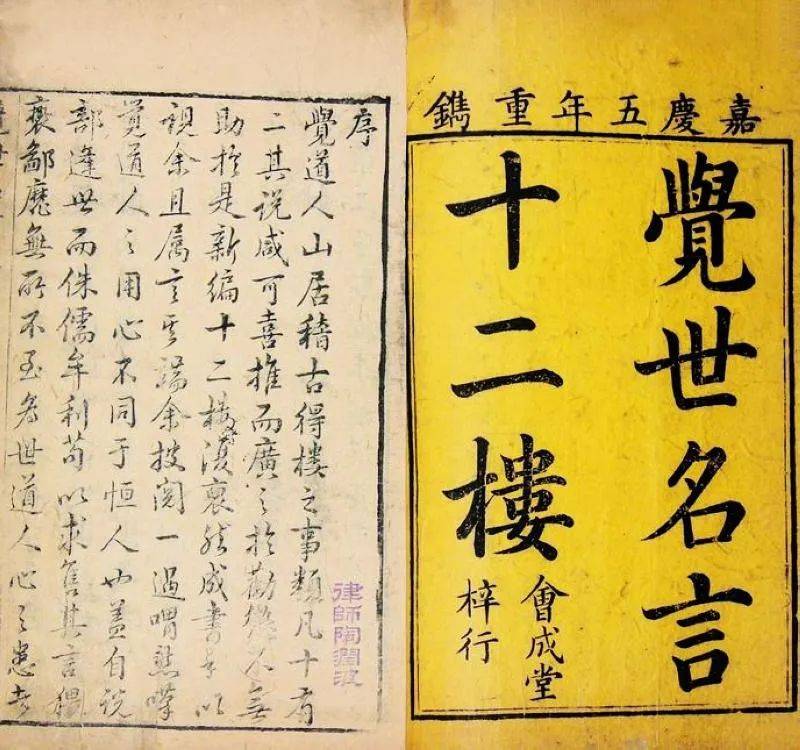 嘉慶五年重鐫
覺世名言
十二樓
會成堂
梓行
序
覺道人山居稽古得樓之事類凡十有
二其説咸可喜推而廣之於勸懲不無
助於是新编十二樓復裒然成書手以
視余且属言其端余披阅一過喟然嘆
覺道人之用心不同于恒人也蓋自说
部逢世而侏儒牟利苟以求售其言猥
褻鄙靡無所不至為世道人心之患者
律師陶潤波